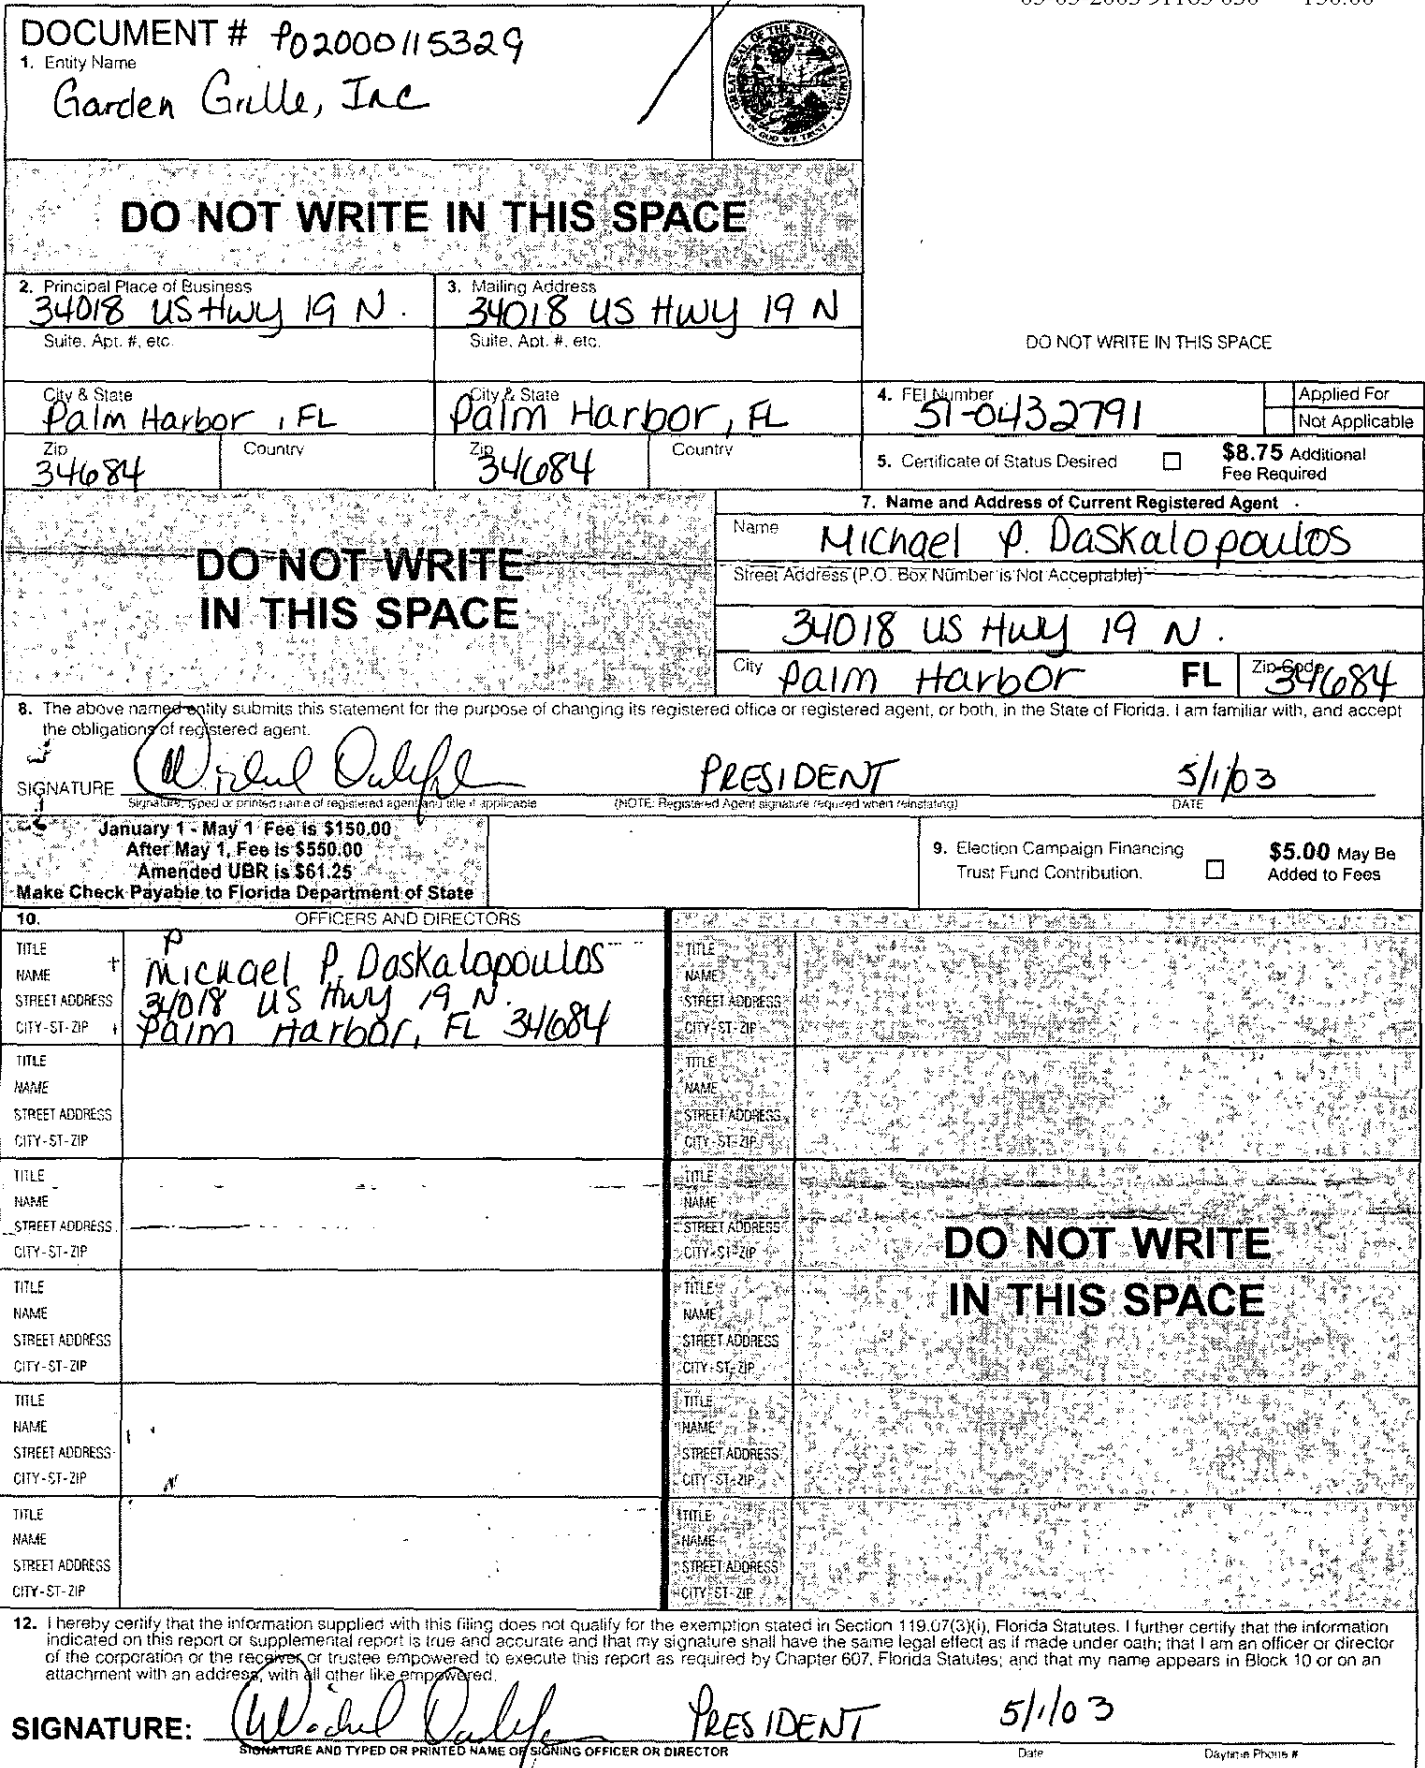 DOCUMENT # P02000115329
1. Entity Name
Garden Grille, Inc
GREAT SEAL OF THE STATE OF FLORIDA
IN GOD WE TRUST
DO NOT WRITE IN THIS SPACE
2. Principal Place of Business
34018 US Hwy 19 N.
Suite, Apt. #, etc.
City & State
Palm Harbor, FL
Zip
34684
Country
3. Mailing Address
34018 US Hwy 19 N
Suite, Apt. #, etc.
City & State
Palm Harbor, FL
Zip
34684
Country
DO NOT WRITE IN THIS SPACE
4. FEI Number
51-0432791
Applied For
Not Applicable
5. Certificate of Status Desired
$8.75 Additional
Fee Required
DO NOT WRITE
IN THIS SPACE
7. Name and Address of Current Registered Agent
Name Michael P. Daskalopoulos
Street Address (P.O. Box Number is Not Acceptable)
34018 US Hwy 19 N.
City Palm Harbor FL Zip Code 34684
8. The above named entity submits this statement for the purpose of changing its registered office or registered agent, or both, in the State of Florida. I am familiar with, and accept
the obligations of registered agent.
SIGNATURE PRESIDENT 5/1/03
Signature, typed or printed name of registered agent and title if applicable (NOTE: Registered Agent signature required when reinstating) DATE
January 1 - May 1 Fee is $150.00
After May 1, Fee is $550.00
Amended UBR is $61.25
Make Check Payable to Florida Department of State
9. Election Campaign Financing
Trust Fund Contribution.
$5.00 May Be
Added to Fees
10. OFFICERS AND DIRECTORS
TITLE P
NAME Michael P. Daskalopoulos
STREET ADDRESS 34018 US Hwy 19 N.
CITY-ST-ZIP Palm Harbor, FL 34684
TITLE
NAME
STREET ADDRESS
CITY-ST-ZIP
TITLE
NAME
STREET ADDRESS
CITY-ST-ZIP
TITLE
NAME
STREET ADDRESS
CITY-ST-ZIP
TITLE
NAME
STREET ADDRESS
CITY-ST-ZIP
TITLE
NAME
STREET ADDRESS
CITY-ST-ZIP
TITLE
NAME
STREET ADDRESS
CITY-ST-ZIP
TITLE
NAME
STREET ADDRESS
CITY-ST-ZIP
TITLE
NAME
STREET ADDRESS
CITY-ST-ZIP
TITLE
NAME
STREET ADDRESS
CITY-ST-ZIP
TITLE
NAME
STREET ADDRESS
CITY-ST-ZIP
TITLE
NAME
STREET ADDRESS
CITY-ST-ZIP
DO NOT WRITE
IN THIS SPACE
12. I hereby certify that the information supplied with this filing does not qualify for the exemption stated in Section 119.07(3)(i), Florida Statutes. I further certify that the information
indicated on this report or supplemental report is true and accurate and that my signature shall have the same legal effect as if made under oath; that I am an officer or director
of the corporation or the receiver or trustee empowered to execute this report as required by Chapter 607, Florida Statutes; and that my name appears in Block 10 or on an
attachment with an address, with all other like empowered.
SIGNATURE: PRESIDENT 5/1/03
SIGNATURE AND TYPED OR PRINTED NAME OF SIGNING OFFICER OR DIRECTOR Date Daytime Phone #